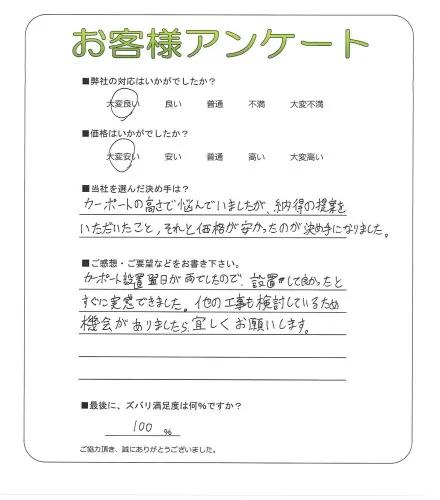 お客様アンケート
■弊社の対応はいかがでしたか？
大変良い 良い 普通 不満 大変不満
■価格はいかがでしたか？
大変安い 安い 普通 高い 大変高い
■当社を選んだ決め手は？
カーポートの高さで悩んでいましたが、納得の提案を
いただいたこと，それと価格が安かったのが決め手になりました。
■ご感想・ご要望などをお書き下さい。
カーポート設置翌日が雨でしたので、設置して良かったと
すぐに実感できました。他の工事も検討しているため
機会がありましたら、宜しくお願いします。
■最後に、ズバリ満足度は何％ですか？
100 %
ご協力頂き、誠にありがとうございました。